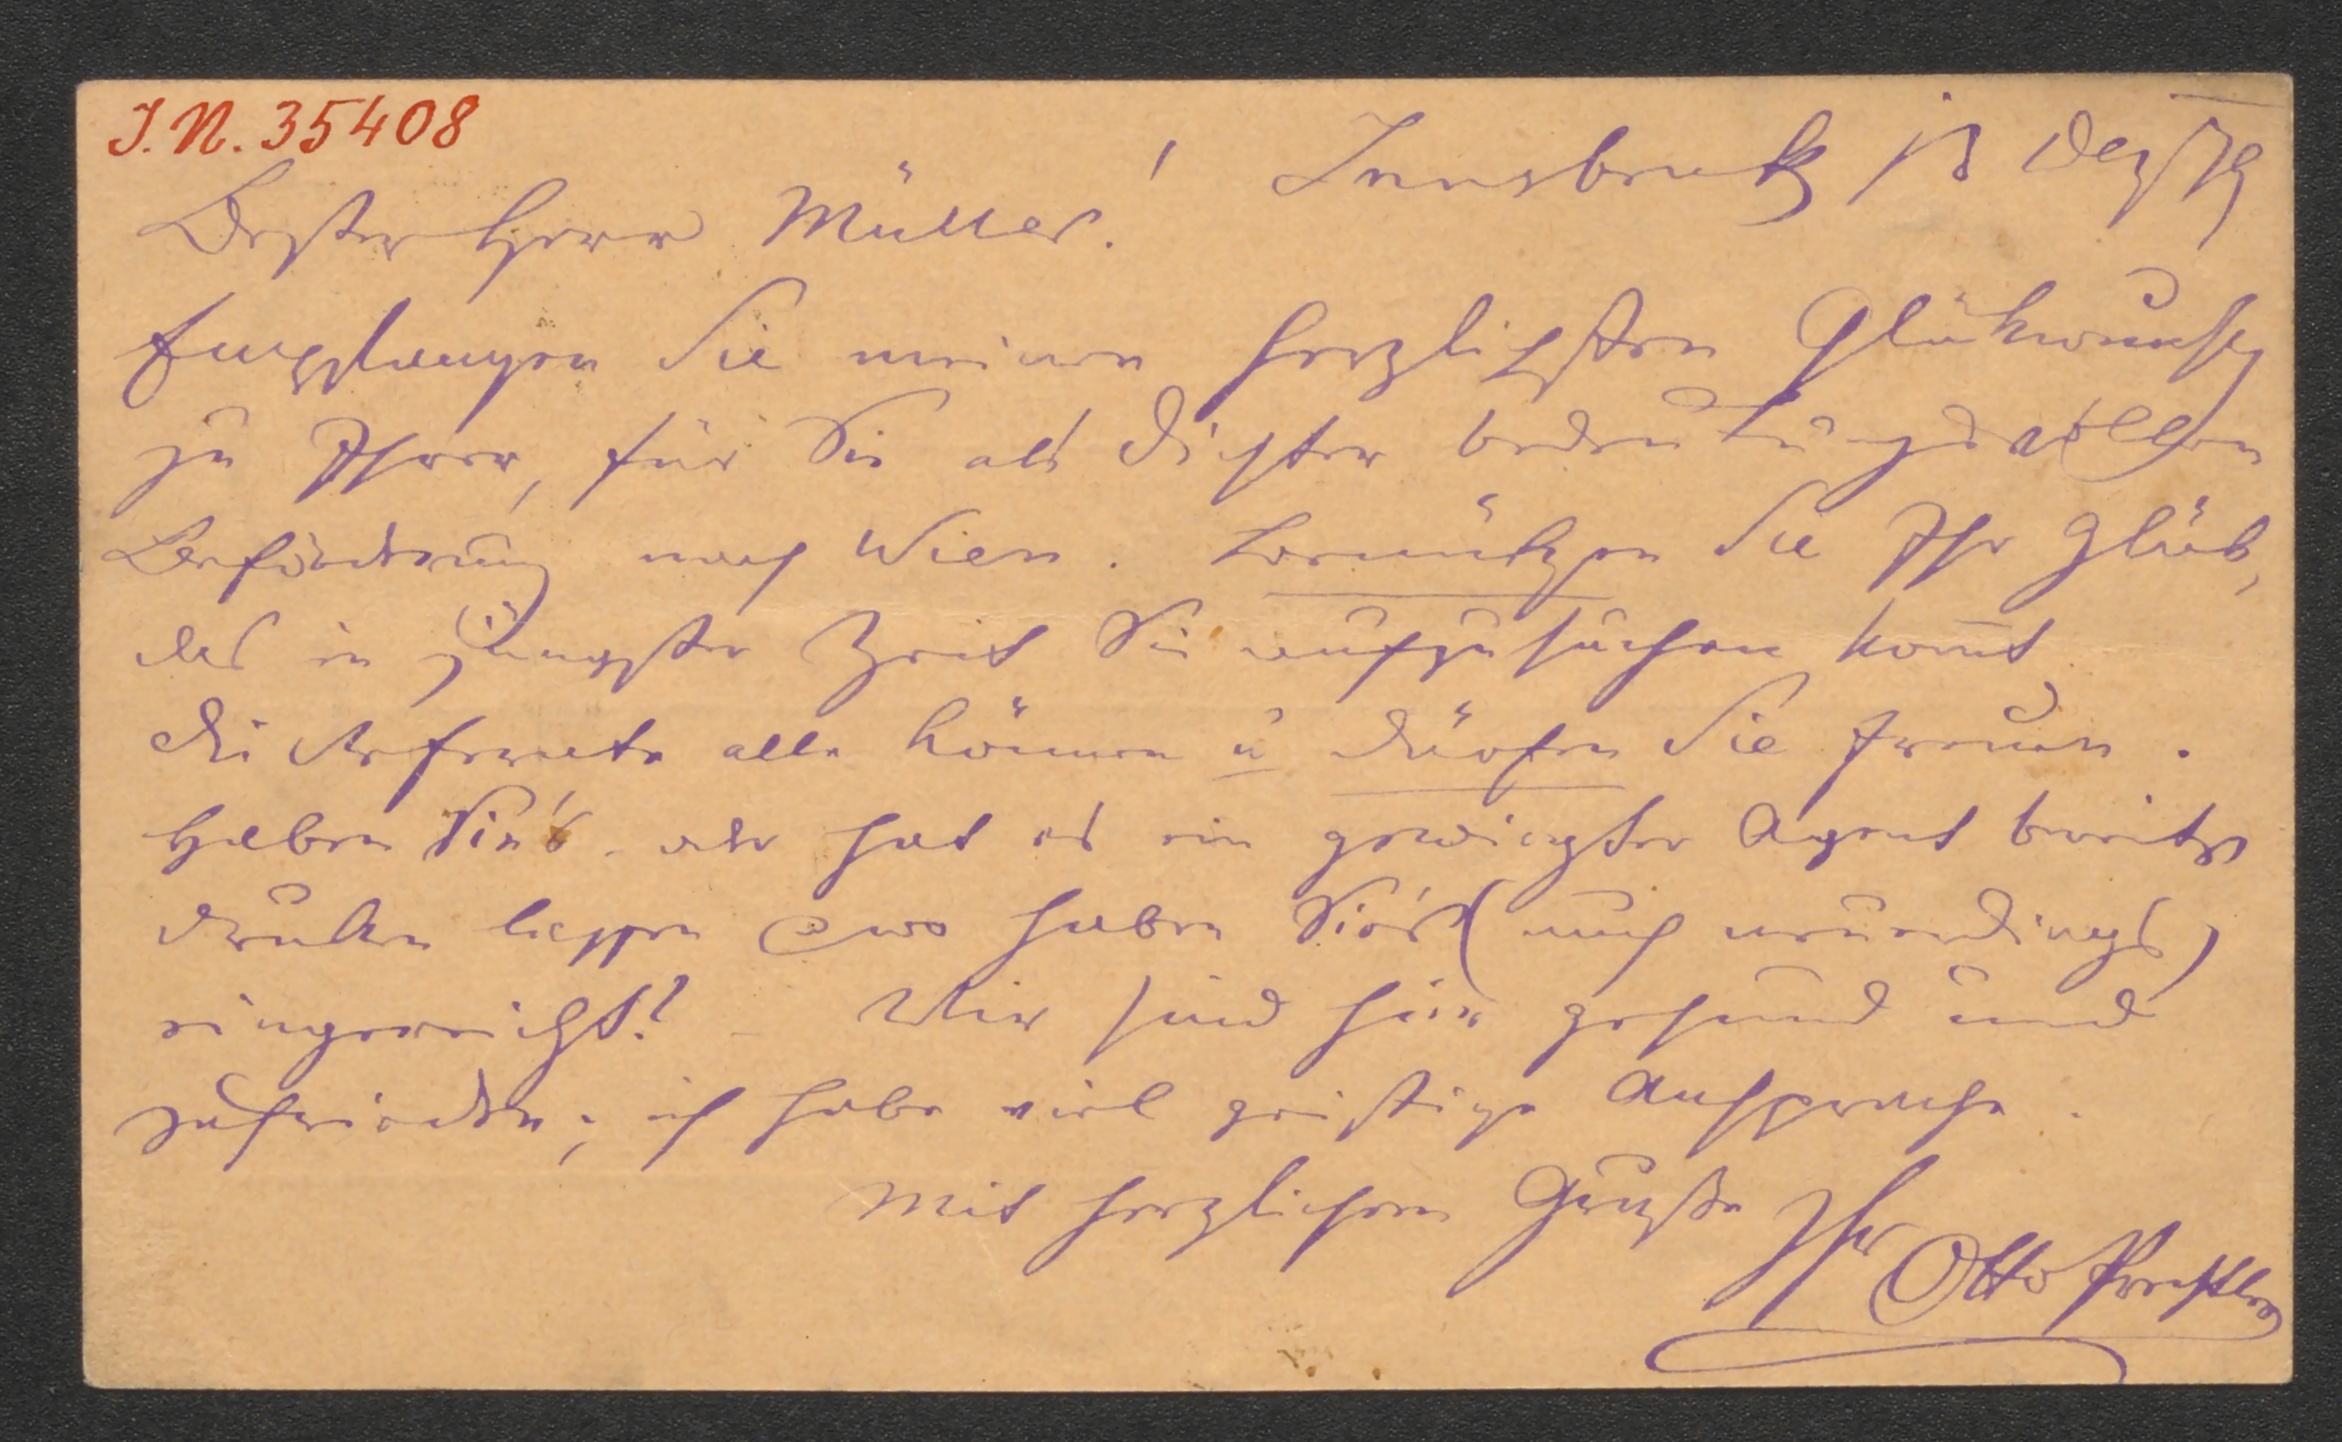 I.N. 35408
Innsbruck 13 Dez 79
Bester Herr Müller!
Empfangen Sie meinen herzlichsten Glückwunsch
zu Ihrer, für Sie als Dichter bedeutungsvollen
Beförderung nach Wien. Benützen Sie Ihr Glück,
das in jüngster Zeit Sie aufzusuchen kommt.
Die Referate alle können u dürfen Sie freuen.
Haben Sie's oder hat es ein gewiegter Agent bereits
drucken lassen wo haben Sie's (auch neuerdings)
eingereicht? – Wir sind hier gesund und
zufrieden; ich habe viel geistige Ansprache.
Mit herzlichem Gruße Ihr Otto Prechtler